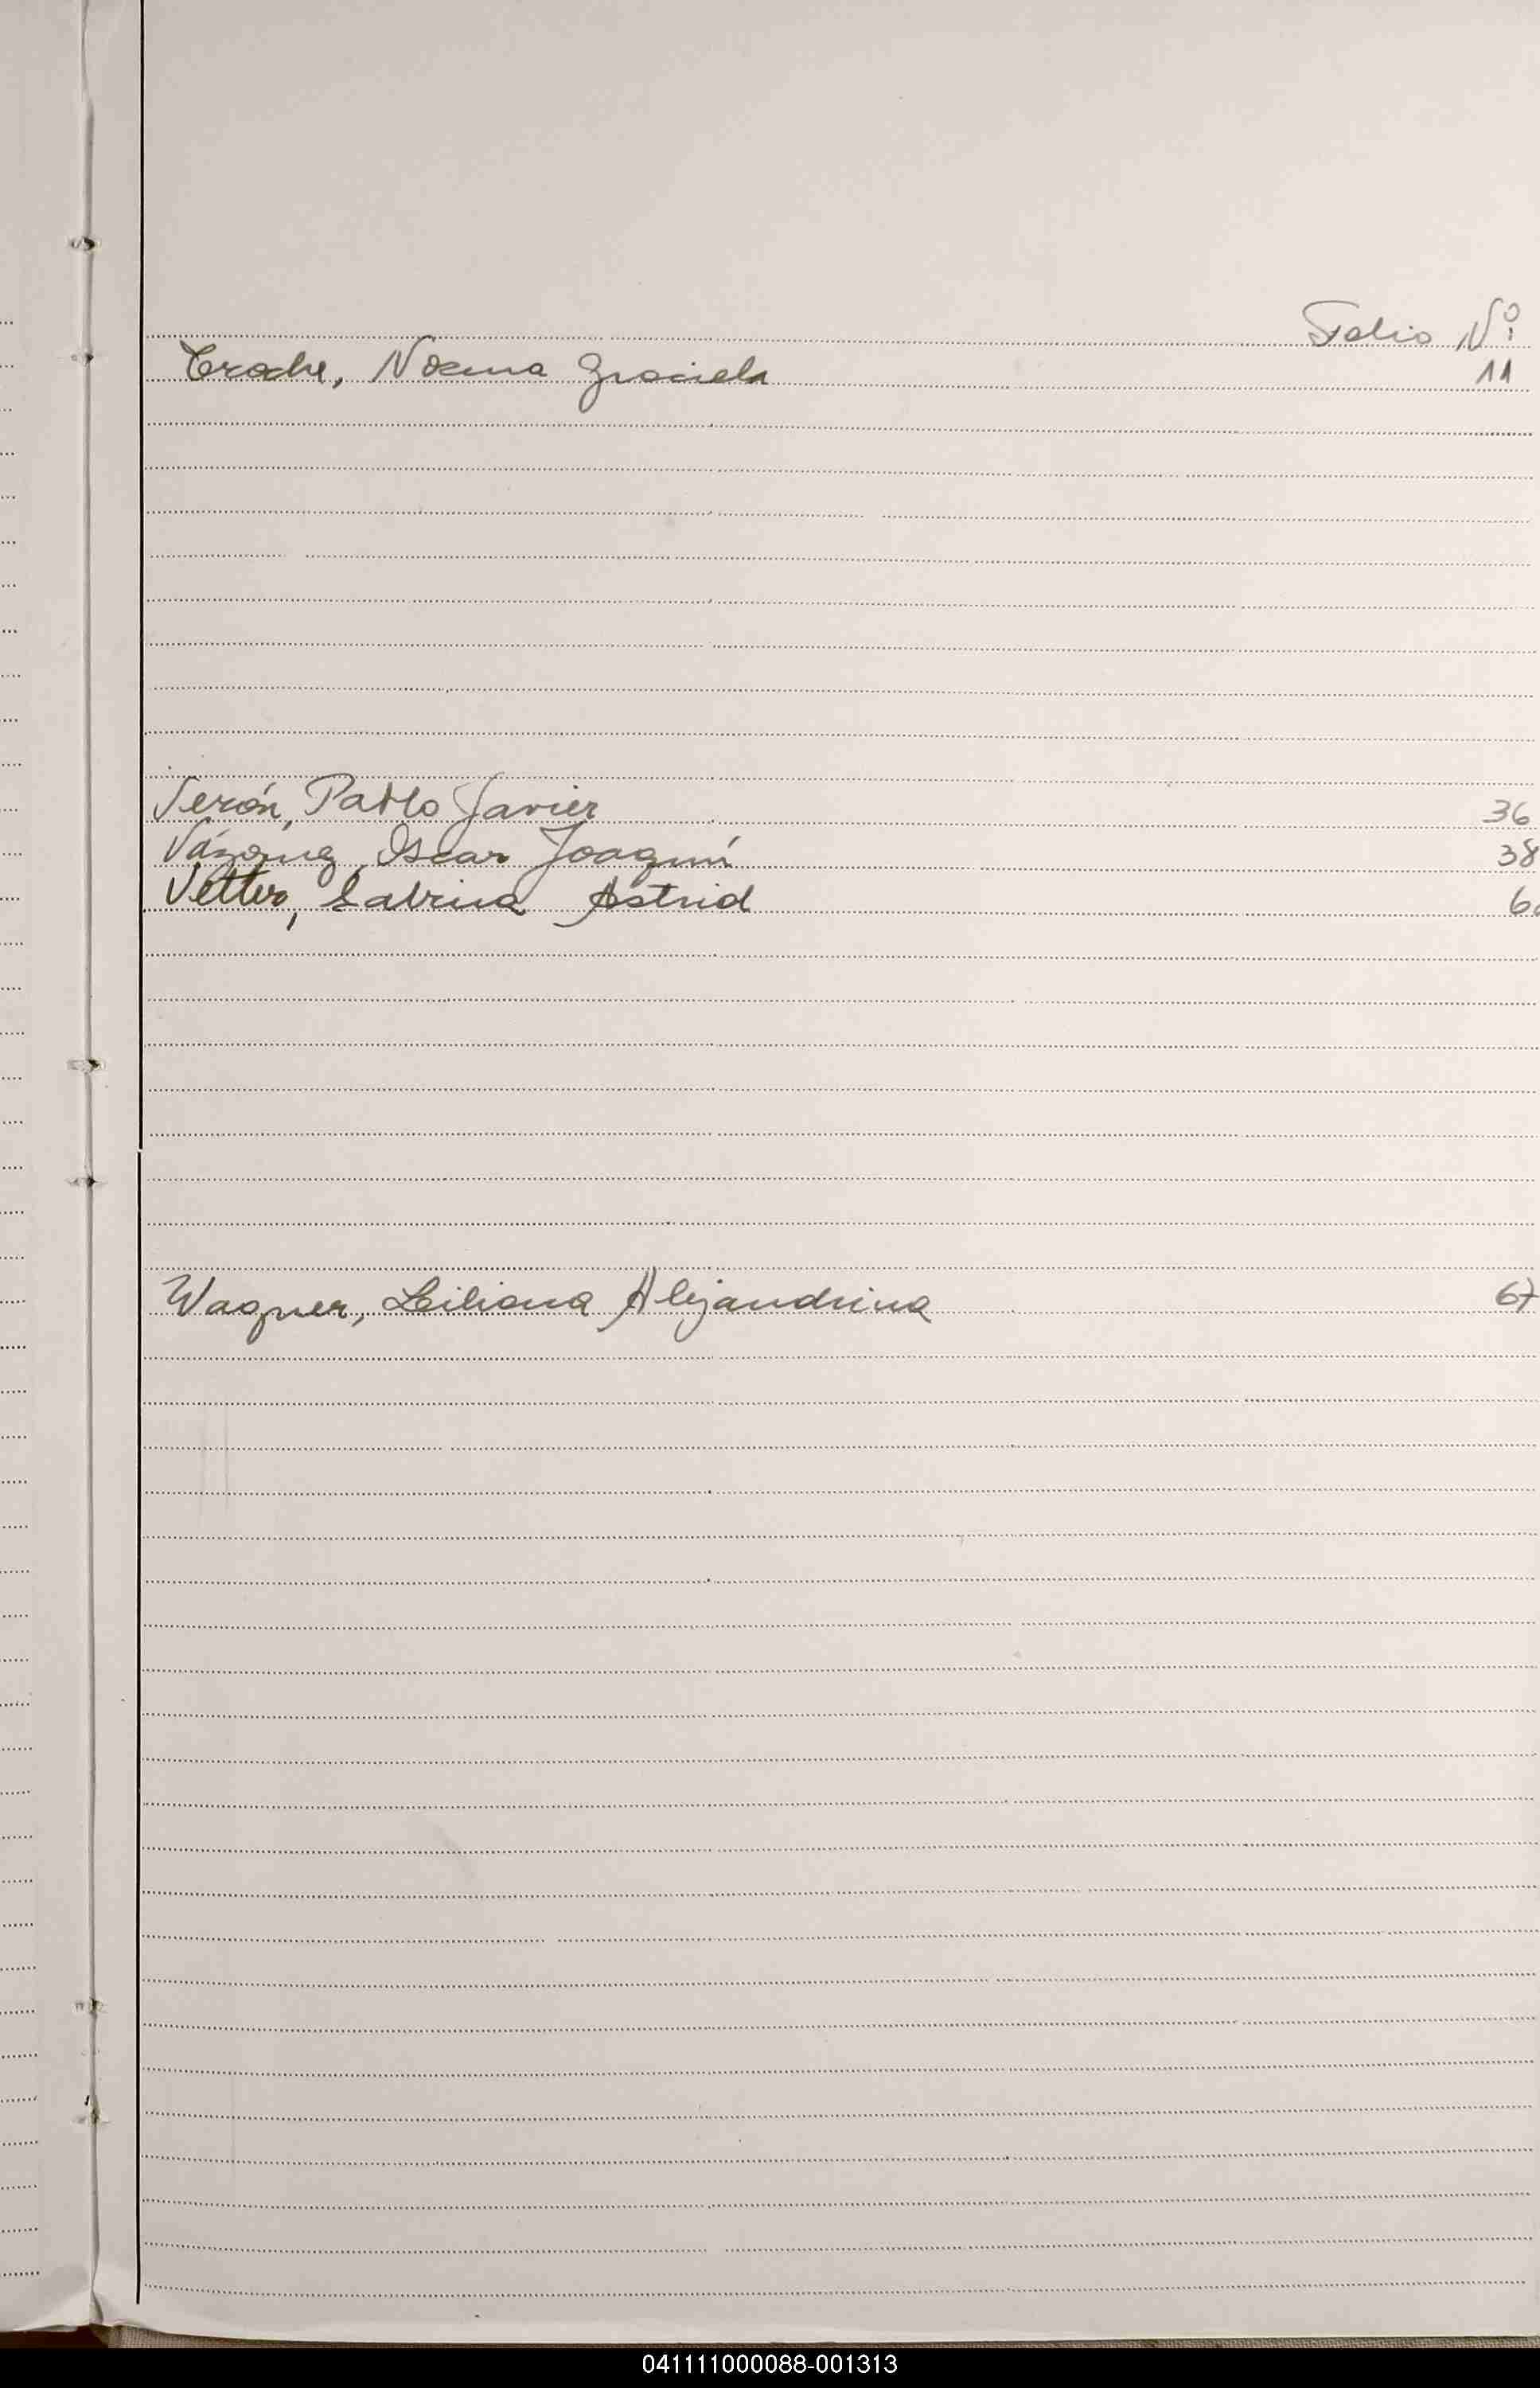 Folio Nº
Troche, Norma Graciela 11
Verón, Pablo Javier 36
Vázquez, Oscar Joaquín 38
Vetter, Sabrina Astrid
Wagner, Liliana Alejandrina 67
041111000088-001313